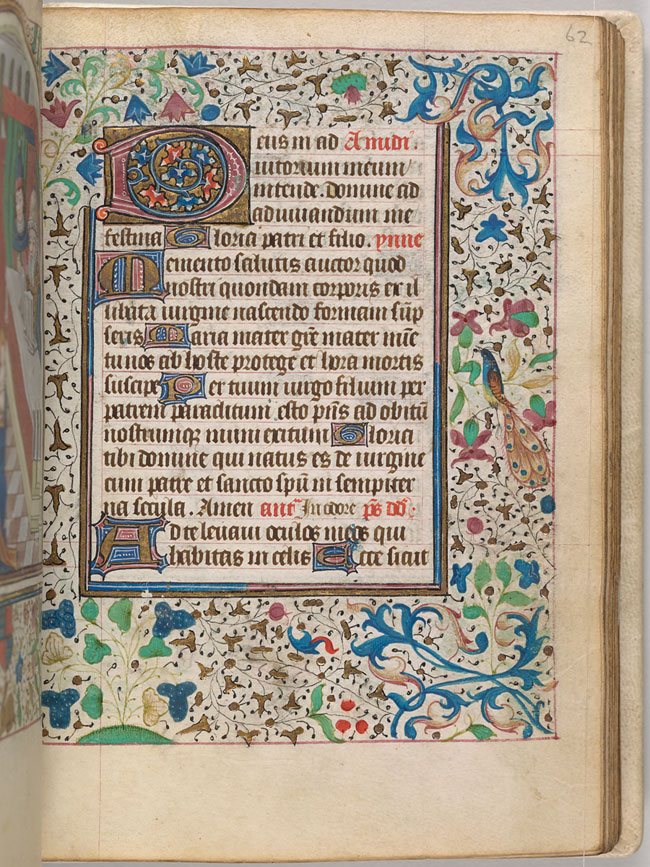 62
Deus in ad A midi.
iutorium meum
intende. Domine ad
adiuuandum me
festina Gloria patri et filio. ymne
Memento salutis auctor quod
nostri quondam corporis ex il
libata uirgine nascendo formam sūp
seris Maria mater gr̄e mater mīe
tu nos ab hoste protege et hora mortis
suscipe Per tuum uirgo filium per
patrem paraclitum esto p̄ns ad obitū
nostrumq muni exitum Gloria
tibi domine qui natus es de uirgine
cum patre et sancto sp̄u in sempiter
na secula. Amen ant̄ In odore p̄s dd̄.
Ad te leuaui oculos meos qui
habitas in celis Ecce sicut